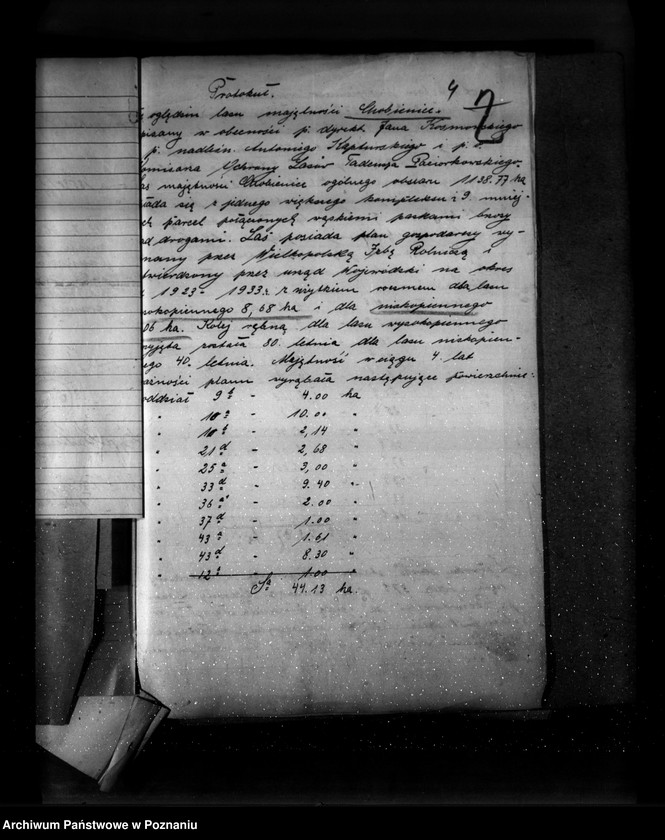 Protokuł. 4
2
oględzin lasu majętności Chobienice
pisany w obecności p. dyrekt. Jana
p. nadleśn. Antoniego i p.
omisarza Ochrony Lasów Tadeusza Paciorkowskiego
as majętności Chobienice ogólnego obszaru 1138.77 ha
łada się z jednego większego kompleksu i 9. mniej-
ch parcel połączonych wąskimi paskami
ad drogami. Las posiada plan gospodarczy wy-
nany przez Wielkopolską Izbę Rolniczą i
twierdzony przez urząd Wojewódzki na okres
1923 - 1933 r. z użytkiem rocznem dla lasu
sokopiennego 8,68 ha i dla niskopiennego
06 ha. Kolej rębną dla lasu wysokopiennego
rzyjęta została 80. letnia dla lasu niskopien-
ego 40. letnia. Majętność w ciągu 4. lat
ażności planu wyrąbała następujące powierzchnie:
oddział 9 - 4.00 ha
" 10 - 10.00 "
" 10 - 2,14 "
" 21 d - 2,68 "
" 25 a - 3,00 "
" 33 d - 9.40 "
" 36 a - 2.00 "
" 37 d - 1.00 "
" 43 a - 1.61 "
" 43 d - 8.30 "
" 12 - 1.00 "
Sa 44.13 ha.
Archiwum Państwowe w Poznaniu